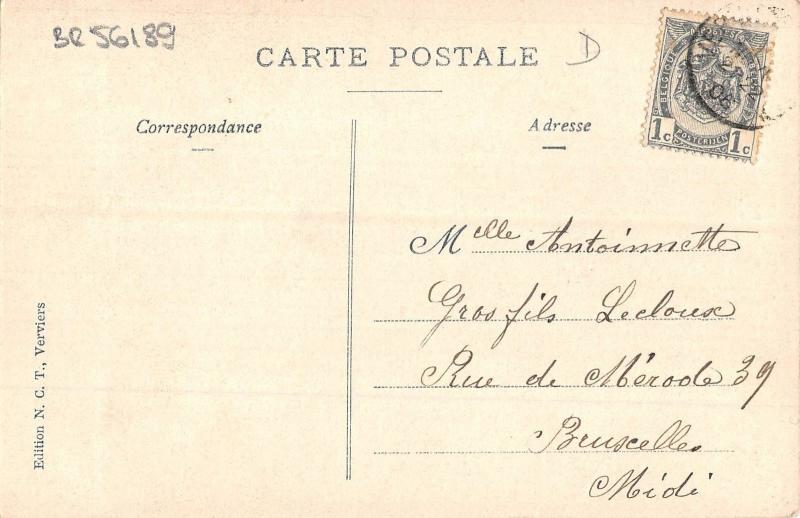 BR56189
CARTE POSTALE
D
Correspondance
Adresse
BELGIQUE
POSTERIJEN
1c 1c
Melle Antoinnette
Gros fils Lecloux
Rue de Mérode 39
Bruxelles
Midi
Edition N. C. T., Verviers